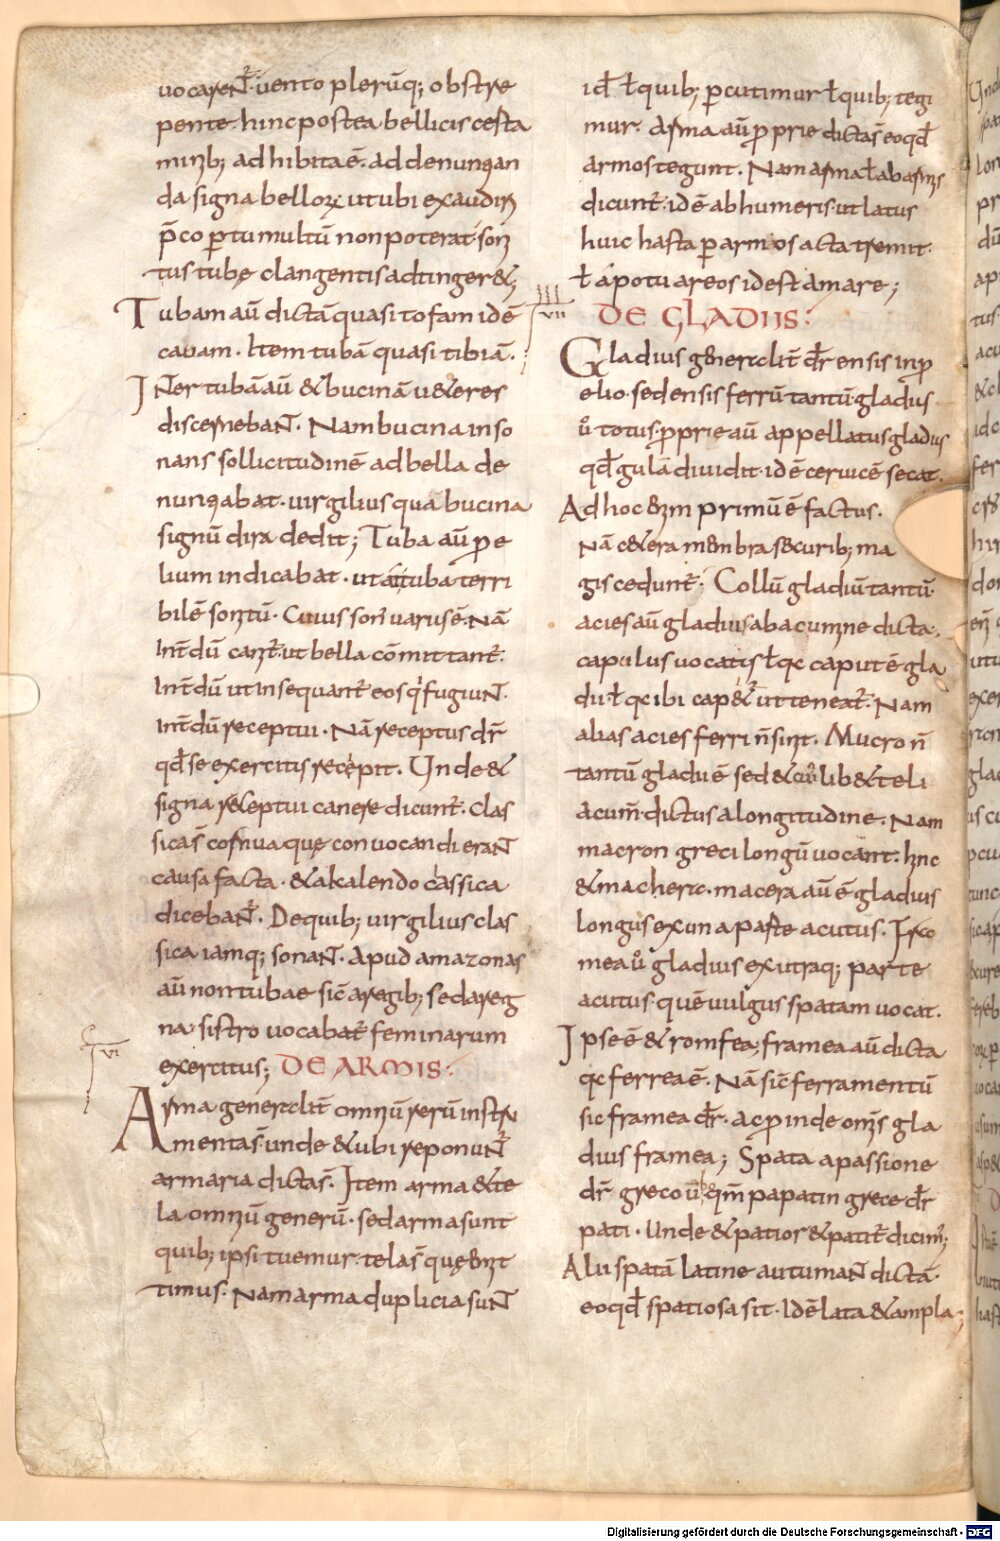 uocarent̄. uento plerūq; obstre
pente. hinc postea bellicis certa
minib; adhibita ē. ad denuncian
da signa belloꝝ. ut ubi exaudiri
p̄co ꝑ tumultū non poterat. soni
tus tubę clangentis adtinger&;
Tubam aū dictā quasi tofam id ē
cauam. Item tubā quasi tibiā.
INter tubā aū & bucinā u&eres
discernebaNt̄. Nam bucina inso
nans sollicitudinē ad bella de
nunciabat. uirgilius qua bucina
signū dira dedit; Tuba aū ꝓe
lium indicabat. ut at tuba terri
bilē sonitū. Cuius son; uarius ē. Nā
Int̄dū canit̄. ut bella cōmittant̄.
Int̄dū ut insequant̄ eos q' fugiuNt.
Int̄dū receptui. Nā receptus dr̄
qd̄ se exercitus recępit. Unde &
signa receptui canere dicunt̄. Clas
sica s̄ cornua quę conuocandi eraNt
causa facta. & a kalendo classica
dicebaNt̄. De quib; uirgilius clas
sica iamq; sonaNt. Apud amazonas
aū non tubae sic̄ a regib; sed a reg
na sistro uocabat̄ feminarum
exercitus; DE ARMIS:
VI
Arma generalit̄ omniū rerū instru
menta s̄. unde & ubi reponuNt̄
armaria dicta s̄. Item arma & te
la omniū generū. sed arma sunt
quib; ipsi tuemur. tela s̄ quę emit
timus. Nam arma duplicia suNt
id ÷ ł quib; ꝑcutimur ł quib; tegi
mur. Arma aū ꝓprie dicta s̄ eo qd̄
armos tegunt. Nam arma ł ab armis
dicunt̄. id ē ab humeris. ut latus
huic hasta ꝑ armos acta tremit.
ł apotuareos id est a mare;
VII
DE GLADIIS:
Gladius generalit̄ dr̄ ensis in ꝓ
elio. sed ensis ferrū tantū. gladius
ů totus. ꝓprie aū appellatus gladius
qd̄ gulā diuidit. id ē ceruicē secat.
Ad hoc enim primū ē factus.
Nā c&era membra securib; ma
gis cedunt̄; Collū gladiū tantū.
acies aū gladii ab acumine dicta.
capulus uocatus ł qa caput ē gla
dii. ł qa ibi capit̄ ut teneat̄. Nam
alias acies ferri n̄ sinit. Mucro n̄
tantū gladii ē sed & cui' lib& teli
acum̄. dictus a longitudine. Nam
macron greci longū uocant. hinc
& machera. macera aū ē gladius
longus ex una parte acutus. Fra
mea ů gladius ex utraq; parte
acutus. quē uulgus spatam uocat.
Ipse ē & romfea; framea aū dicta
qa ferrea ē. Nā sic̄ ferramentū
sic framea dr̄. ac ꝓinde omīs gla
dius framea; Spata a passione
dr̄ greco ū. qm̄ papatin grece dr̄
pati. Unde & patior & patit̄ dicim;
Alii spatā latine autumaNt dictā.
eo qd̄ spatiosa sit. id ē lata & ampla;
Digitalisierung gefördert durch die Deutsche Forschungsgemeinschaft - DFG